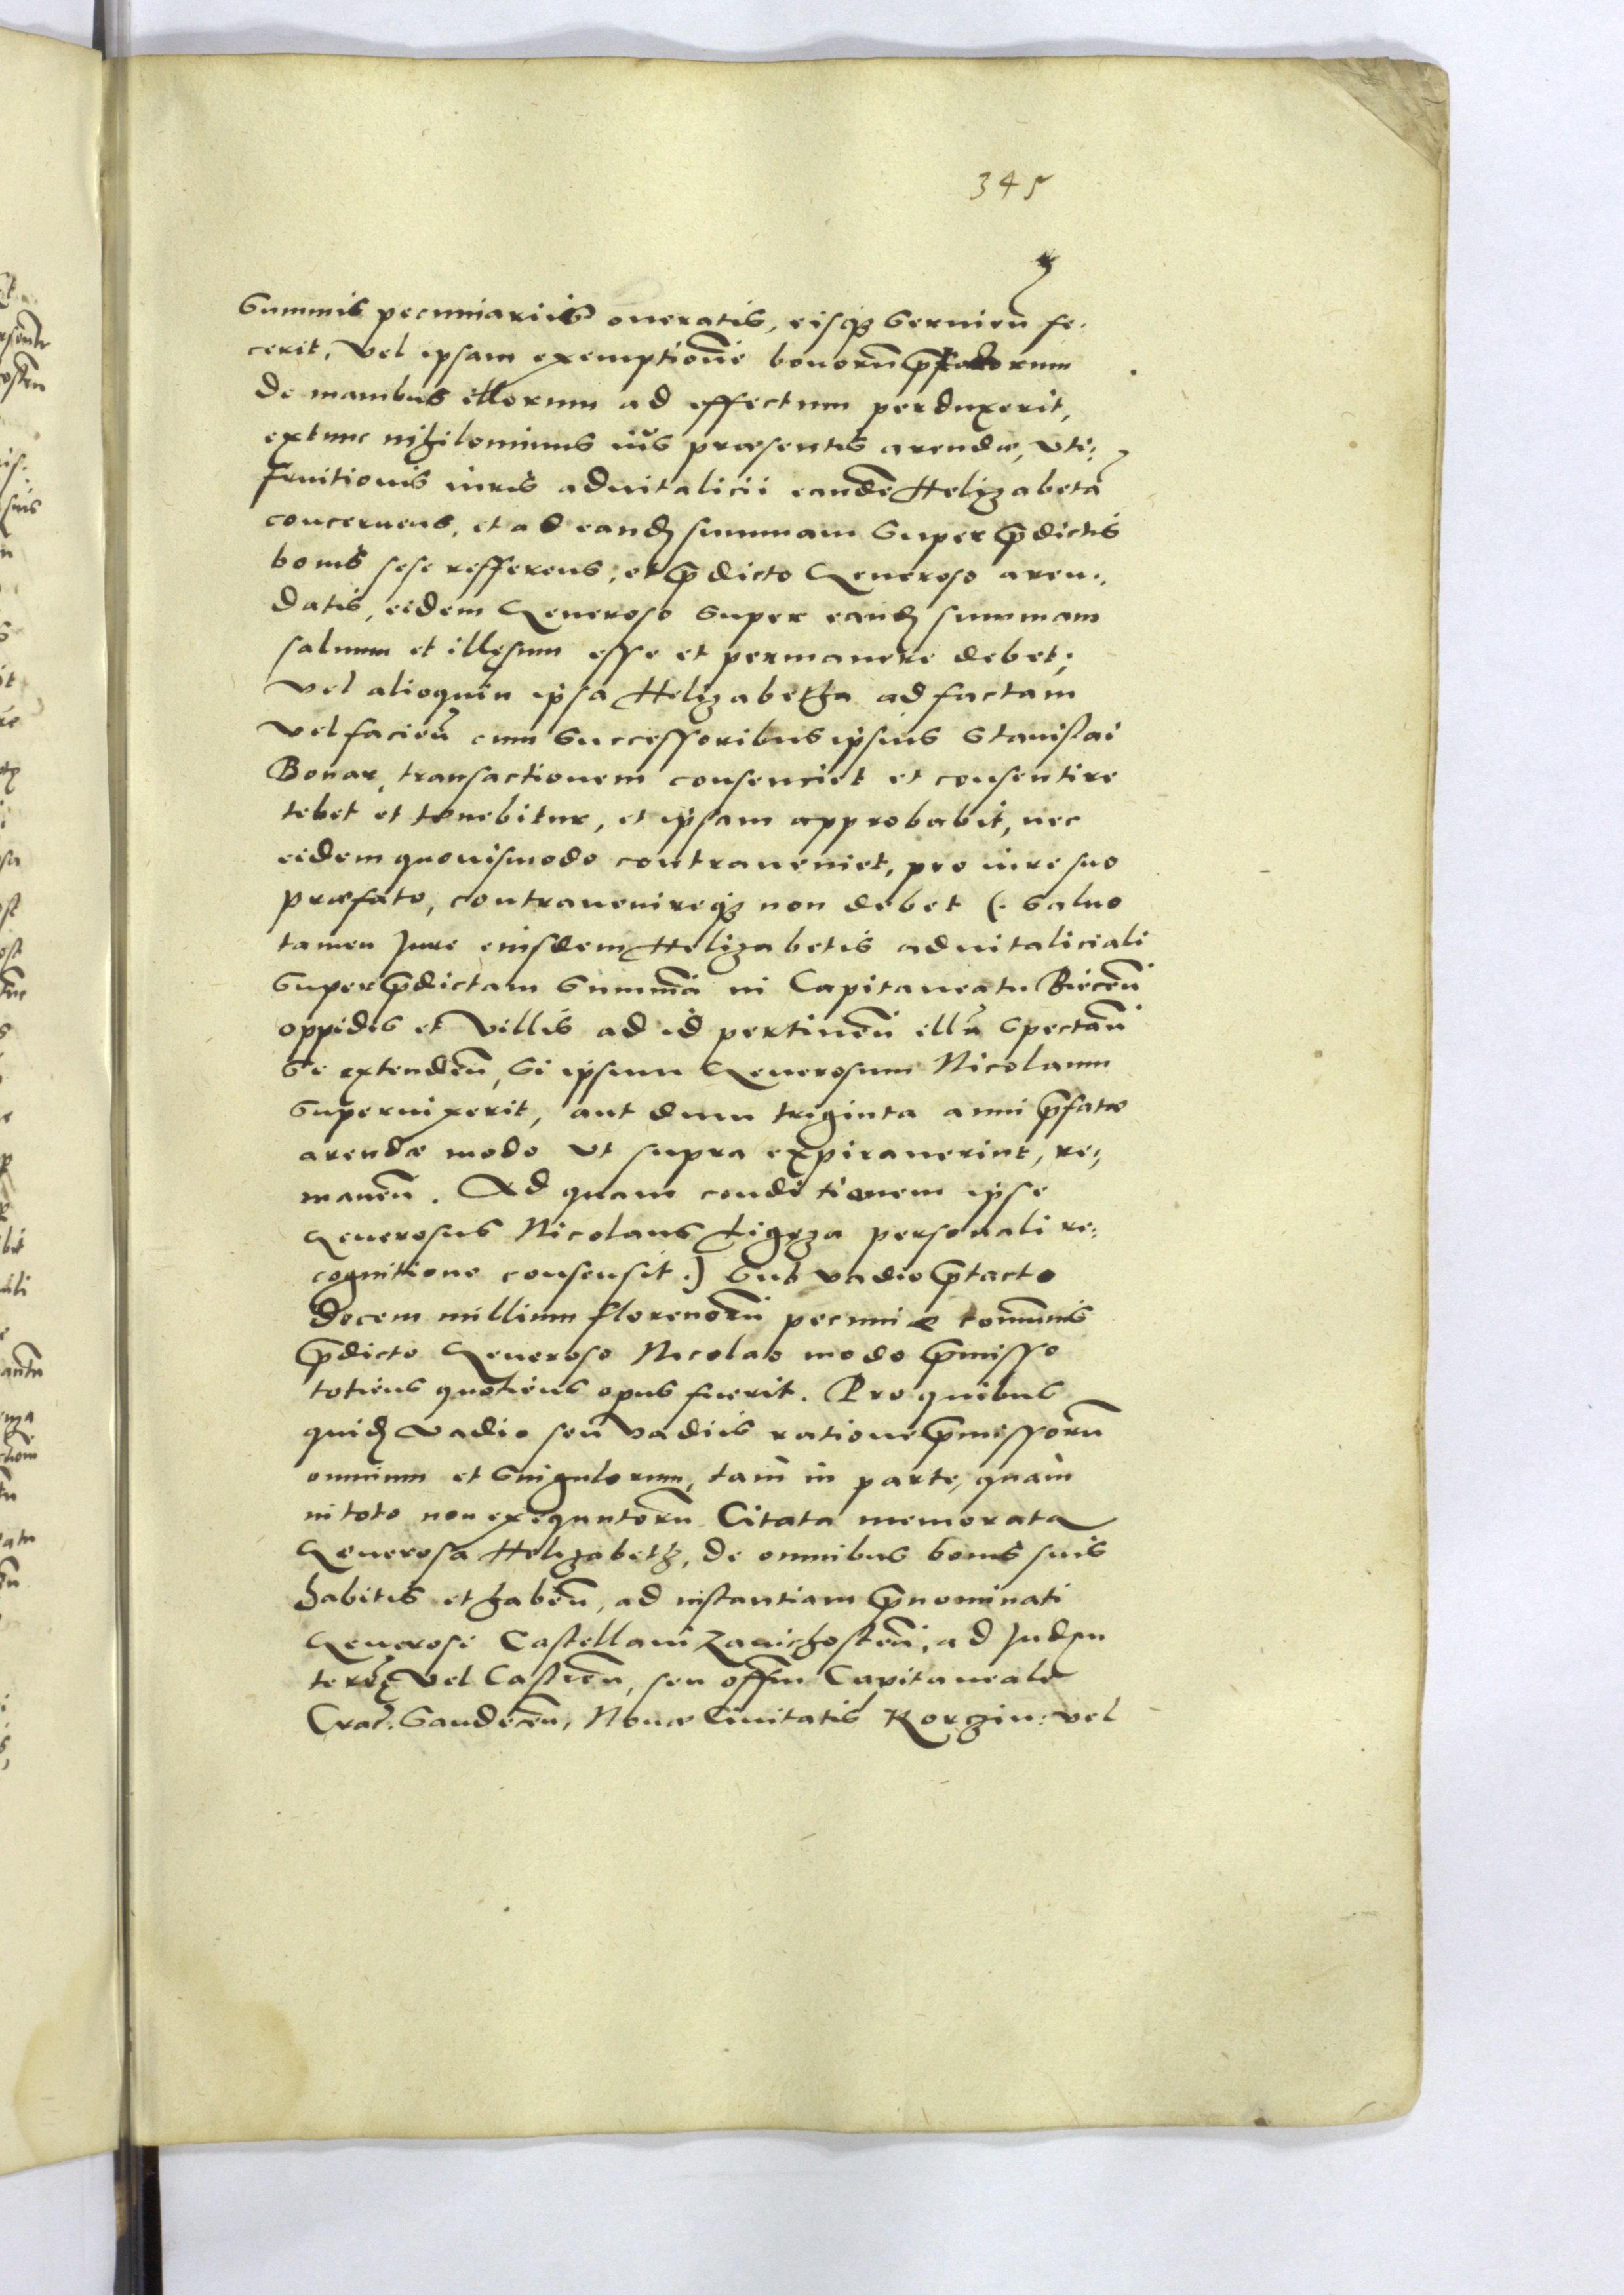 345
summis pecuniariis oneratis, eisq₃ servien̄ fe:
cerit, Vel ipsam exemptionē bonorū p̄fatorum
de manibus illorum ad effectum perduxerit,
extunc nihilominus ius præsentis arendæ, uti:
fruitionis iuris advitalicii eandē Helizabetā
concernens, et ad eandꝫ summam super p̄dictis
bonis sese refferens, et p̄dicto Generoso aren:
datis, eidem Generoso super eandꝫ summam
salvum et illęsum esse et permanere debet;
Vel alioquin ipsa Helizabetha ad factam
vel facien̄ cum successoribus ipsius Stanislai
Bonar, transactionem consenciet et consentire
tebet et tenebitur, et ipsam approbabit, nec
eidem quovismodo contraveniet, pro iure suo
præfato, contravenireq₃ non debet (: salvo
tamen Jure eiusdem Helizabetis advitaliciali
super p̄dictam summā in Capitaneatu Biecen̄
oppidis et Villis ad id pertinen̄ illu͞ spectan̄
se extenden̄, si ipsum Generosum Nicolaum
supervixerit, aut dum triginta anni p̄fatæ
arendæ modo ut supra expiraverint, re:
manen̄. Ad quam conditionem ipse
Generosus Nicolaus Ligęza personali re:
cognitione consensit :) sub vadio p̄tacto
decem millium florenorū pecuniæ com̄unis
p̄dicto Generoso Nicolao modo p̄misso
totiens quotiens opus fuerit. Pro quibus
quidꝫ vadio seu vadiis ratione p̄missorū
omnium et singulorum, tam in parte, quam
in toto non exequutorū Citata memorata
Generosa Helizabeth, de omnibus bonis suis
habitis et haben̄, ad instantiam p̄nominati
Generosi Castellani Zavichosten̄, ad Judm
terrę̄ vel Castren̄, seu offm Capitaneale
Crac. Sandecen̄, Novæ Civitatis Korczin: vel